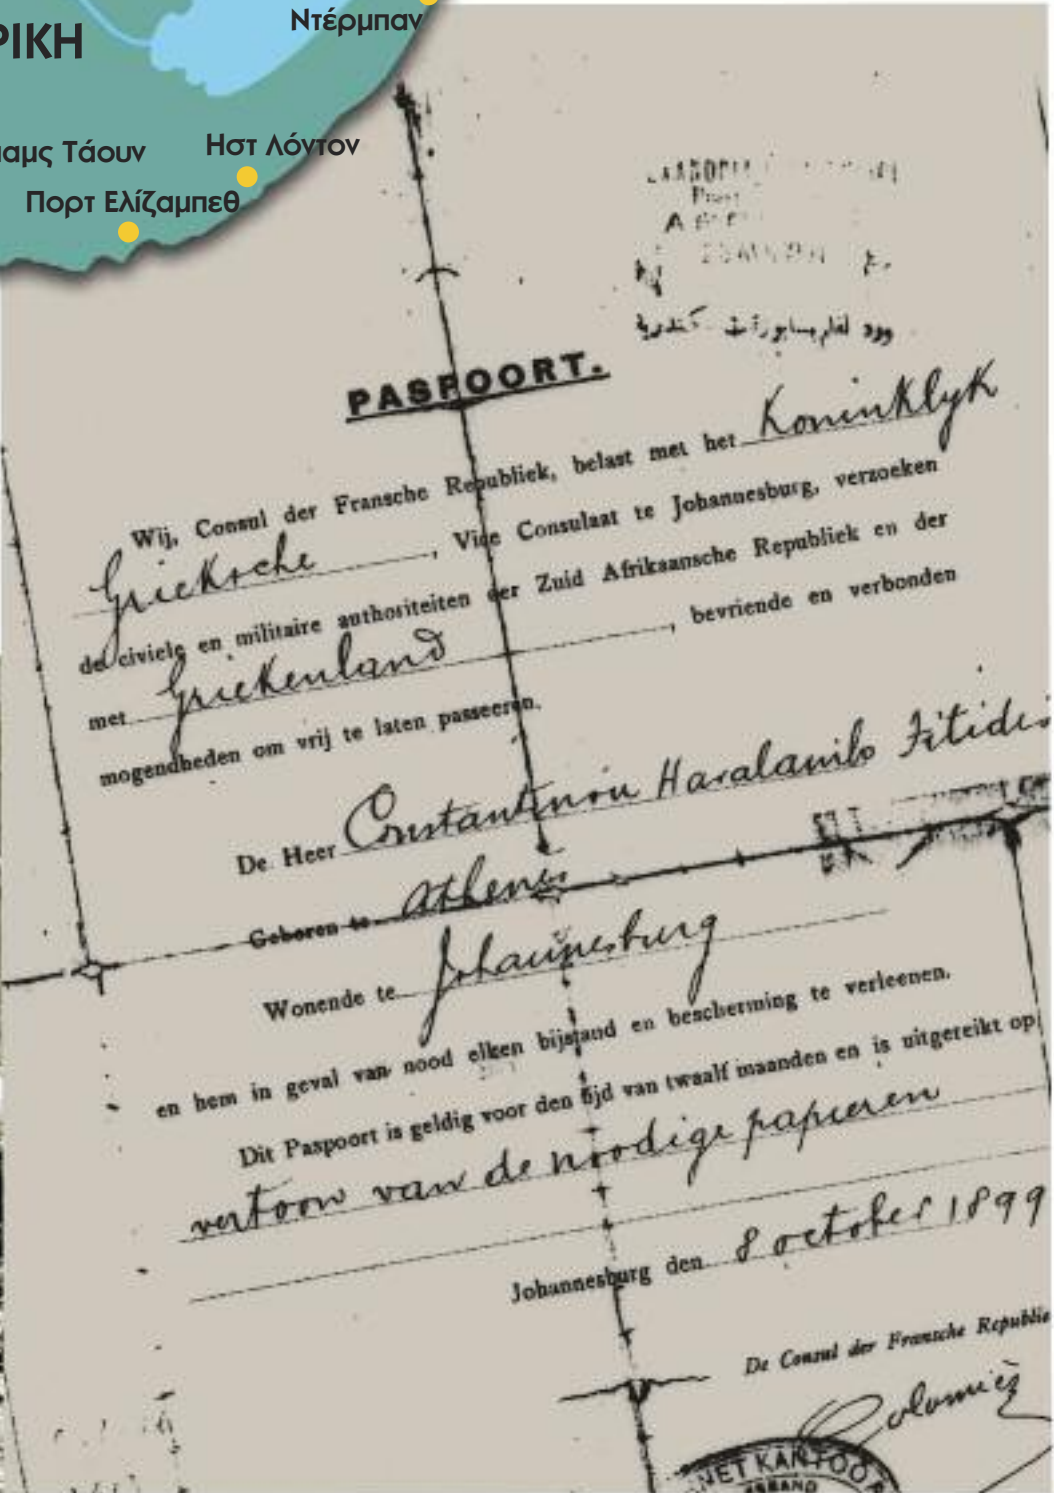 Ντέρμπαν
ΡΙΚΗ
αμς Τάουν
Ηστ Λόντον
Πορτ Ελίζαμπεθ
PASPOORT.
Wij, Consul der Fransche Republiek, belast met het Koninklyk
Grieksche, Vice Consulaat te Johannesburg, verzoeken
de civiele en militaire authoriteiten der Zuid Afrikaansche Republiek en der
met Griekenland, bevriende en verbonden
mogendheden om vrij te laten passeeren.
De Heer Constantinou Haralambo
Geboren te Athenes
Wonende te Johannesburg
en hem in geval van nood elken bijstand en bescherming te verleenen.
Dit Paspoort is geldig voor den tijd van twaalf maanden en is uitgereikt op
vertoon van de noodige papieren
Johannesburg den 8 october 1899
De Consul der Fransche Republie
Colomiès
NET KANTOOR